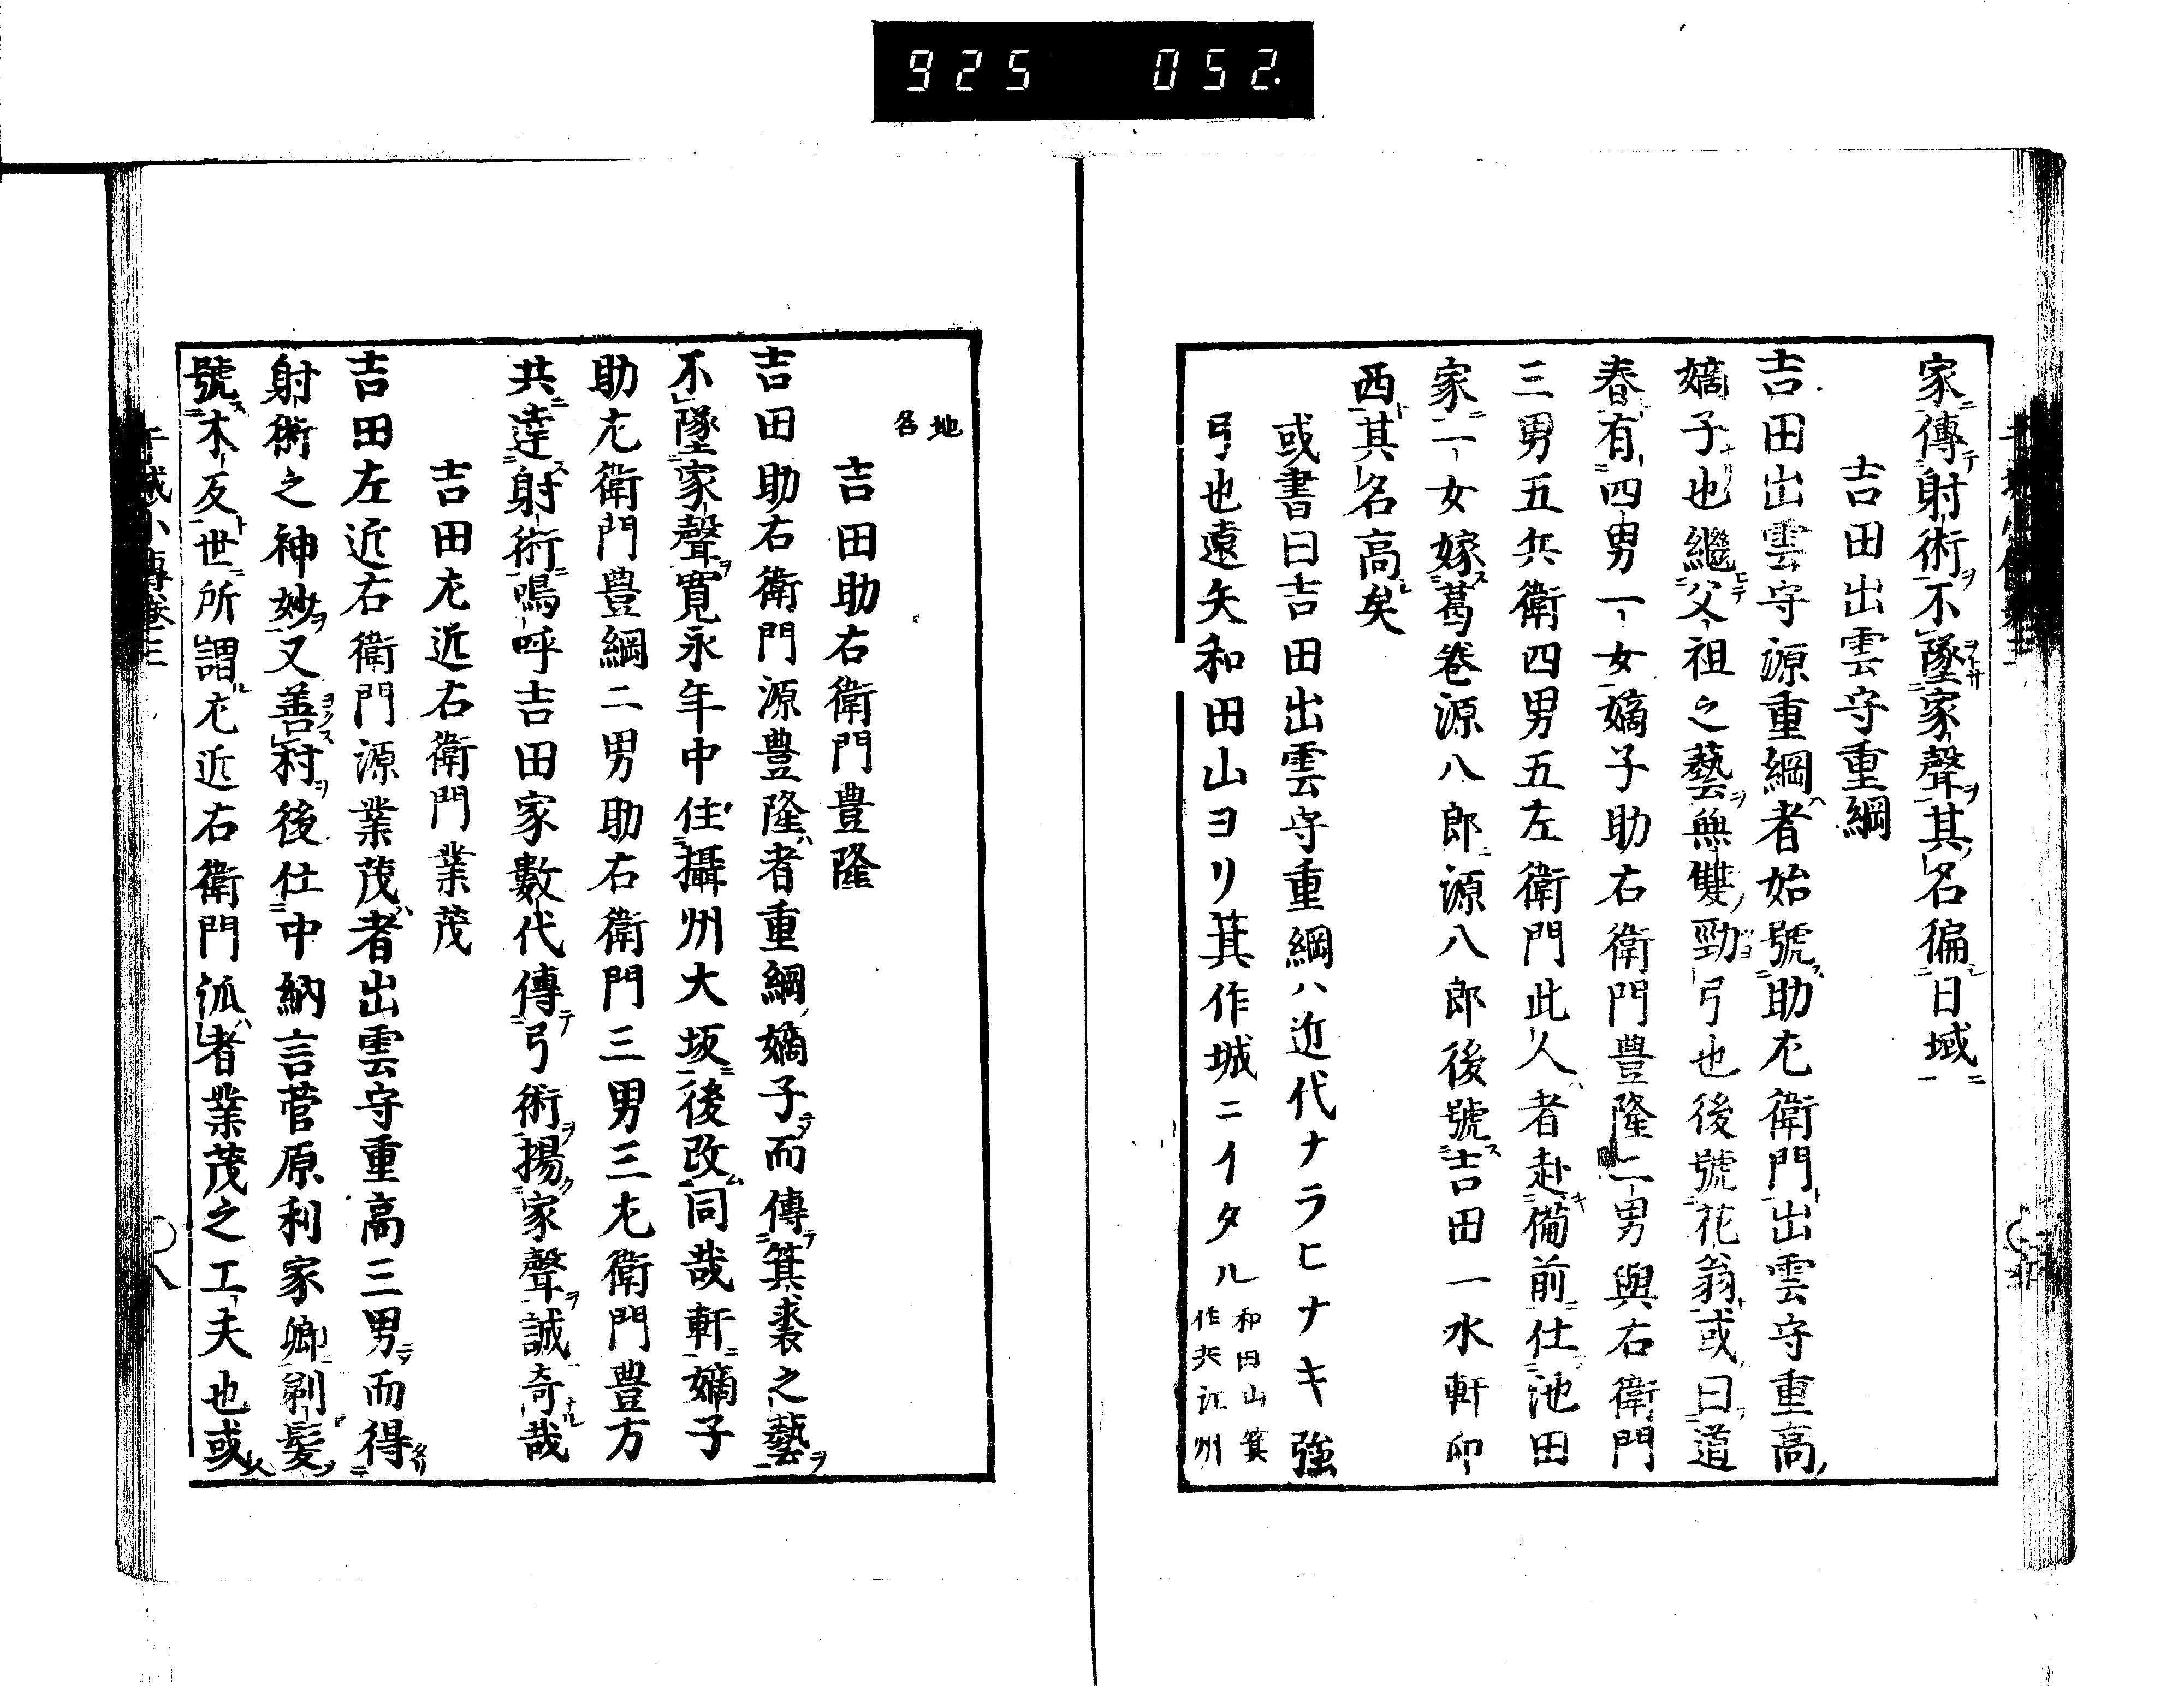 925 052.
家傳射術不墜家聲其名徧日域
吉田出雲守重綱
吉田出雲守源重綱者始號助左衛門出雲守重高
嫡子也繼父祖之藝無雙勁弓也後號花翁或曰道
春有四男一女嫡子助右衛門豊隆二男與右衛門
三男五兵衛四男五左衛門此人者赴備前仕池田
家一女嫁葛巻源八郎源八郎後號吉田一水軒卯
西其名高矣
或書曰吉田出雲守重綱ハ近代ナラヒナキ強
弓也遠矢和田山ヨリ箕作城ニイタル和田山箕
作共江州
地
名
吉田助右衛門豊隆
吉田助右衛門源豊隆者重綱嫡子而傳箕裘之藝
不墜家聲寛永年中住攝州大坂後改同哉軒嫡子
助左衛門豊綱二男助右衛門三男三左衛門豊方
共達射術嗚呼吉田家數代傳弓術揚家聲誠奇哉
吉田左近右衛門業茂
吉田左近右衛門源業茂者出雲守重高三男而得
射術之神妙又善村後仕中納言菅原利家卿剃髪
號木反世所謂左近右衛門派者業茂之工夫也或
干城小傳卷三